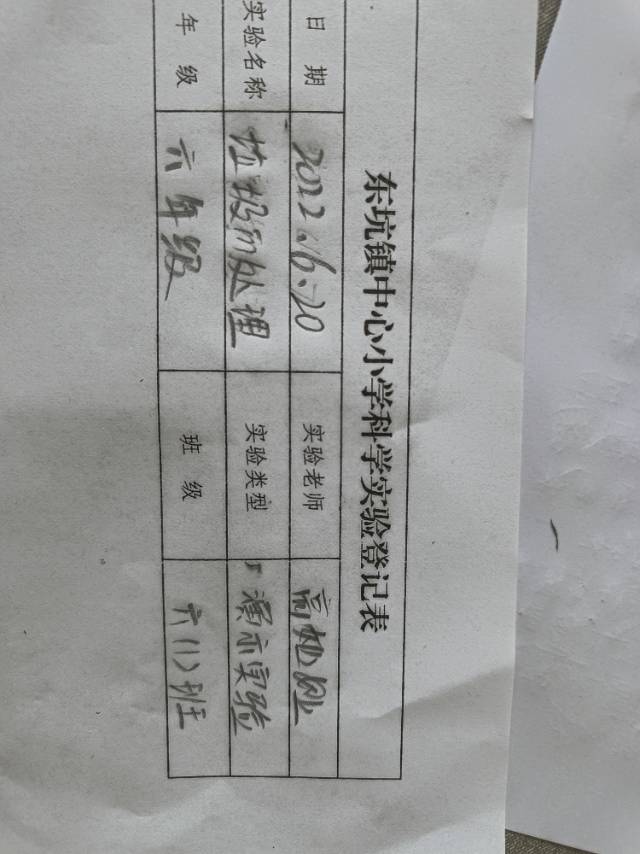 东坑镇中心小学科学实验登记表
日 期 2022.6.20 实验老师 高
实验名称 垃圾的处理 实验类型 演示实验
年 级 六年级 班 级 六(1)班